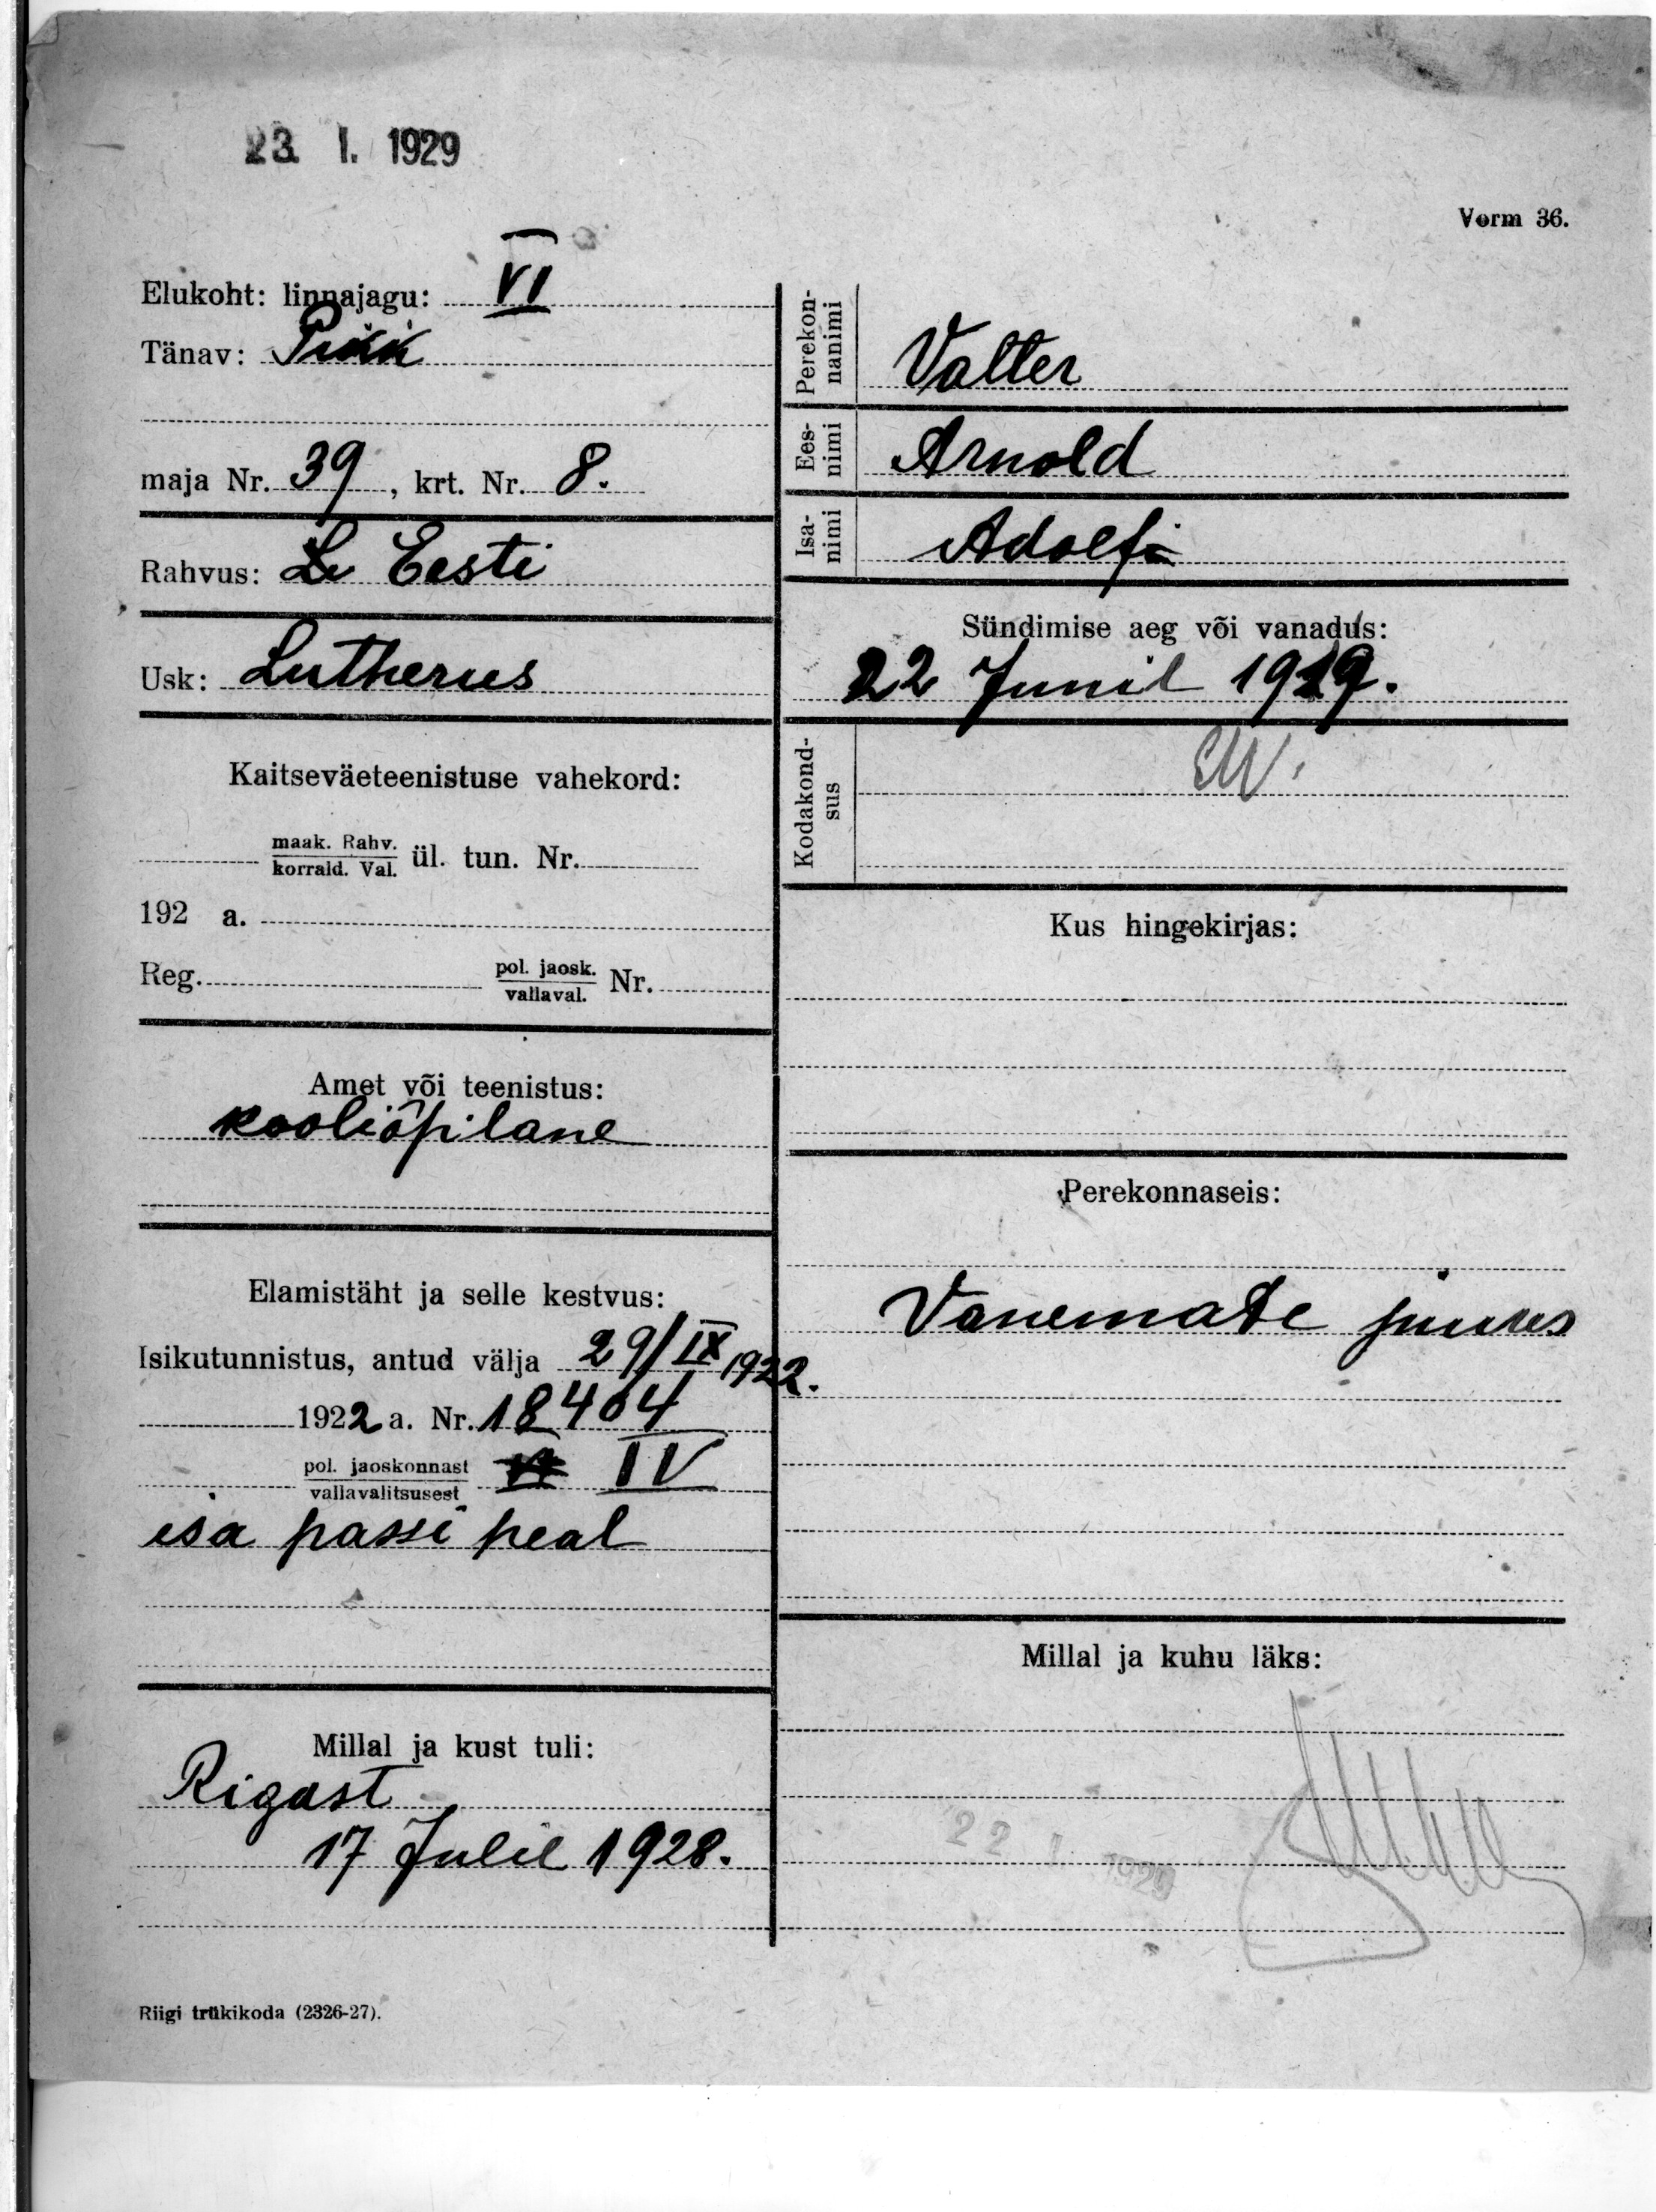 23. I. 1929
Vorm 36.
Elukoht: linnajagu: VI
Tänav: Pikk
maja Nr. 39, krt. Nr. 8.
Rahvus: Eesti
Usk: Lutherus
Kaitseväeteenistuse vahekord:
maak. Rahv.
korrald. Val. ül. tun. Nr.
192 a.
Reg. pol. jaosk.
vallaval. Nr.
Amet või teenistus:
kooliõpilane
Elamistäht ja selle kestvus:
Isikutunnistus, antud välja 29/IX 1922.
1922 a. Nr. 18404
pol. jaoskonnast IV
vallavalitsusest
isa passi peal
Millal ja kust tuli:
Rigast
17 Julil 1928.
Perekon-
nanimi Valter
Ees-
nimi Arnold
Isa-
nimi Adolfi
Sündimise aeg või vanadus:
22 Junil 1919.
Kodakond-
sus EW.
Kus hingekirjas:
Perekonnaseis:
Vanemate juures
Millal ja kuhu läks:
22 I 1929
Riigi trükikoda (2326-27).